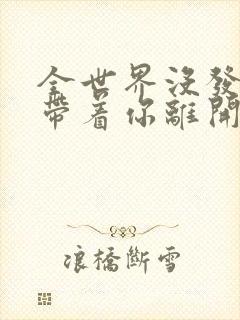 全世界沒發
帶着你離開
浪橋斷雪